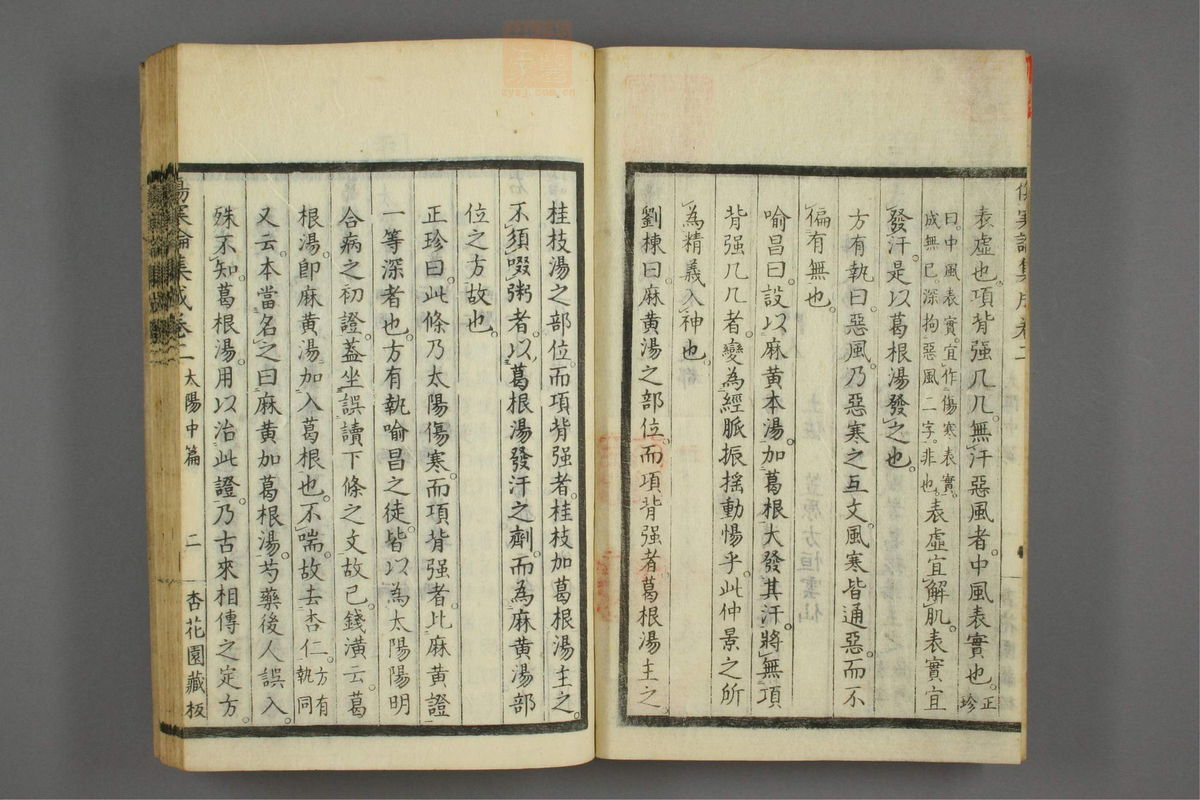 傷寒論集成卷二
表虛也。項背强几几。無汗惡風者。中風表實也。正珍
曰。中風表實。宜作傷寒表實。成無已深拘惡風二字。非也。表虛宜解肌。表實宜
發汗。是以葛根湯發之也。
方有執曰。惡風。乃惡寒之互文。風寒皆通惡。而不
偏有無也。
喻昌曰。設以麻黄本湯。加葛根大發其汗。將無項
背强几几者。變為經脈振摇動惕乎。此仲景之所
為精義入神也。
劉棟曰。麻黄湯之部位。而項背强者。葛根湯主之。
桂枝湯之部位。而項背强者。桂枝加葛根湯主之。
不須啜粥者。以葛根湯發汗之劑。而為麻黄湯部
位之方故也。
正珍曰。此條乃太陽傷寒。而項背强者。比麻黄證
一等深者也。方有執喻昌之徒。皆以為太陽陽明
合病之初證。蓋坐誤讀下條之文故已。錢潢云。葛
根湯。卽麻黄湯加入葛根也。不喘。故去杏仁。方有執同
又云。本當名之曰麻黄加葛根湯。芍藥後人誤入。
殊不知葛根湯。用以治此證。乃古來相傳之定方。
傷寒論集成卷二 太陽中篇 二 杏花園藏板
zysj.com.cn